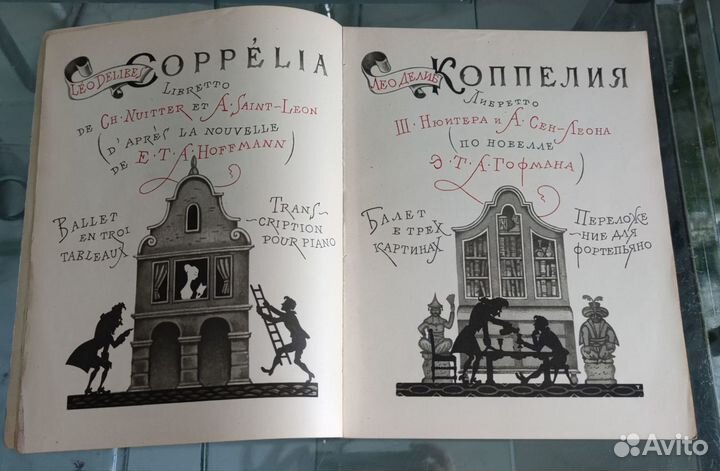 LÉO DELIBES
COPPÉLIA
LIBRETTO
DE CH. NUITTER ET A. SAINT-LÉON
(D'APRÈS LA NOUVELLE
DE E. T. A. HOFFMANN)
BALLET
EN TROI
TABLEAUX
TRANS-
CRIPTION
POUR PIANO
ЛЕО ДЕЛИБ
КОППЕЛИЯ
ЛИБРЕТТО
Ш. НЮИТЕРА И А. СЕН-ЛЕОНА
(ПО НОВЕЛЛЕ
Э. Т. А. ГОФМАНА)
БАЛЕТ
В ТРЕХ
КАРТИНАХ
ПЕРЕЛОЖЕ-
НИЕ ДЛЯ
ФОРТЕПЬЯНО
1
Avito